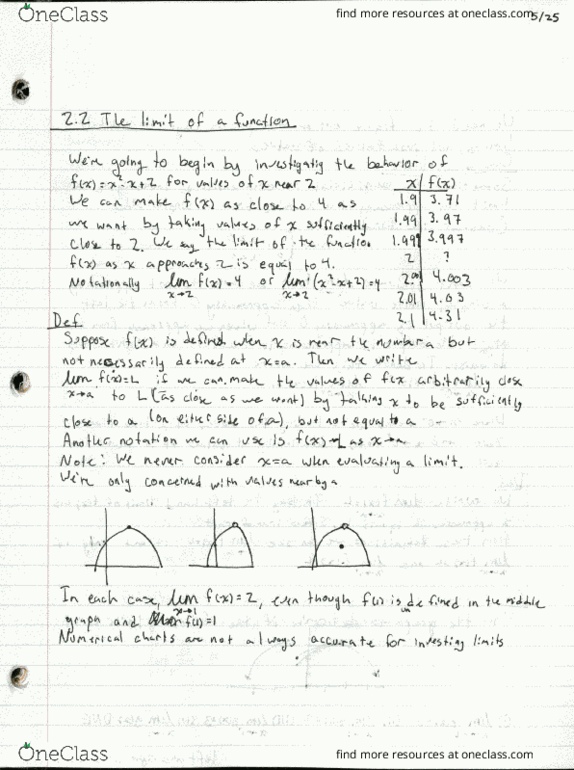 OneClass
find more resources at oneclass.com
5/25
2.2 The limit of a function
We're going to begin by investigatig the behavior of
f(x)=x²-x+2 for values of x near 2
We can make f(x) as close to 4 as
we want by taking values of x sufficiently
close to 2. We say the limit of the function
f(x) as x approaches 2 is equal to 4.
Notationally lim x→2 f(x)=4 or lim x→2 (x²-x+2)=4
x | f(x)
1.9 | 3.71
1.99 | 3.97
1.999 | 3.997
2 | ?
2.001 | 4.003
2.01 | 4.03
2.1 | 4.31
Def
Suppose f(x) is defined when x is near the number a but
not necessarily defined at x=a. Then we write
lim x→a f(x)=L if we can make the values of f(x) arbitrarily close
to L (as close as we want) by taking x to be sufficiently
close to a (on either side of a), but not equal to a
Another notation we can use is f(x)→L as x→a
Note: We never consider x=a when evaluating a limit.
We're only concerned with values nearby a
In each case, lim x→1 f(x)=2, even though f(1) is un defined in the middle
graph and f(1)=1
Numerical charts are not always accurate for investing limits
OneClass
find more resources at oneclass.com